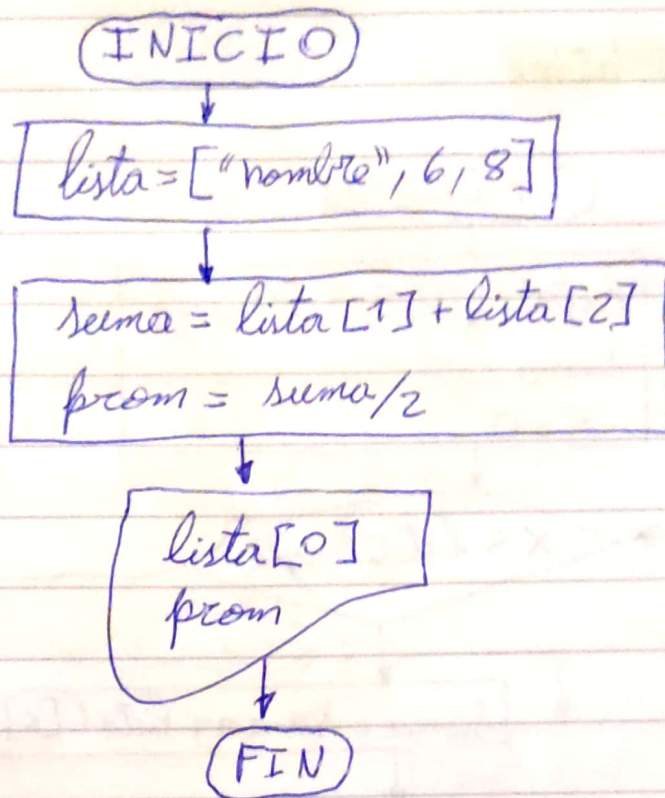 INICIO
lista = ["nombre", 6, 8]
suma = lista [1] + lista [2]
prom = suma/2
lista [0]
prom
FIN